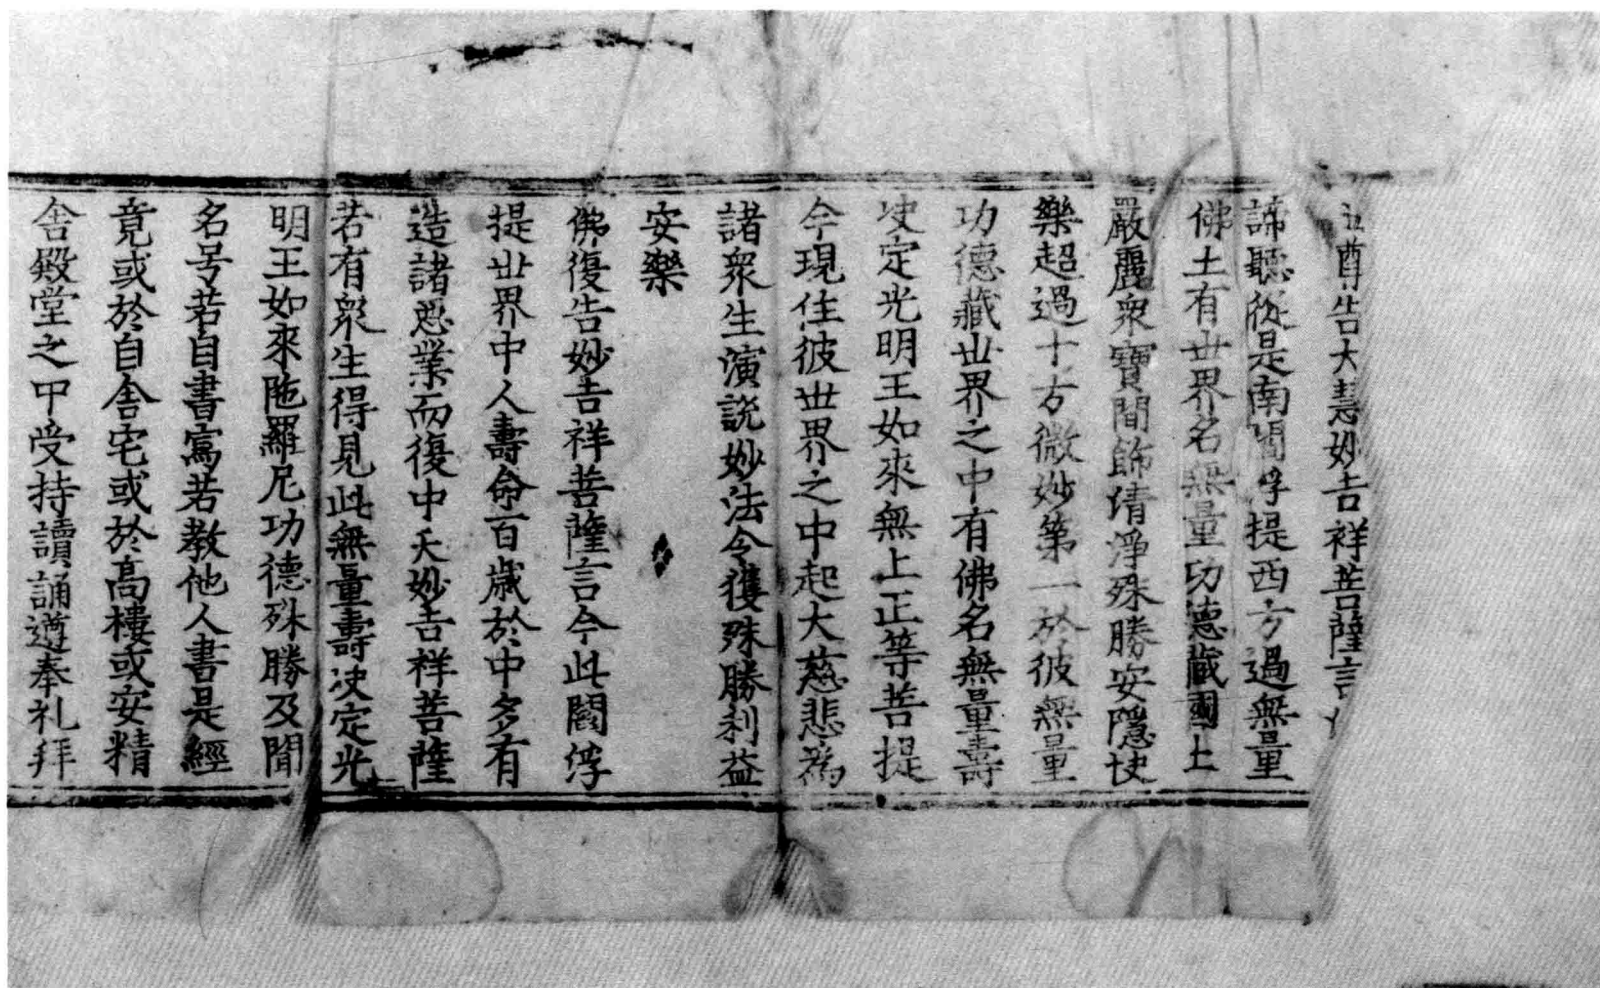 尊告大慧妙吉祥菩薩言
諦聽從是南閻浮提西方過無量
佛土有世界名無量功德藏國土
嚴麗衆寶間飾清淨殊勝安隱快
樂超過十方微妙第一於彼無量
功德藏世界之中有佛名無量壽
决定光明王如來無上正等菩提
今現住彼世界之中起大慈悲為
諸衆生演説妙法令獲殊勝利益
安樂
佛復告妙吉祥菩薩言今此閻浮
提世界中人壽命百歲於中多有
造諸惡業而復中夭妙吉祥菩薩
若有衆生得見此無量壽决定光
明王如來陁羅尼功德殊勝及聞
名号若自書寫若教他人書是經
竟或於自舍宅或於高樓或安精
舍殿堂之中受持讀誦遵奉礼拜